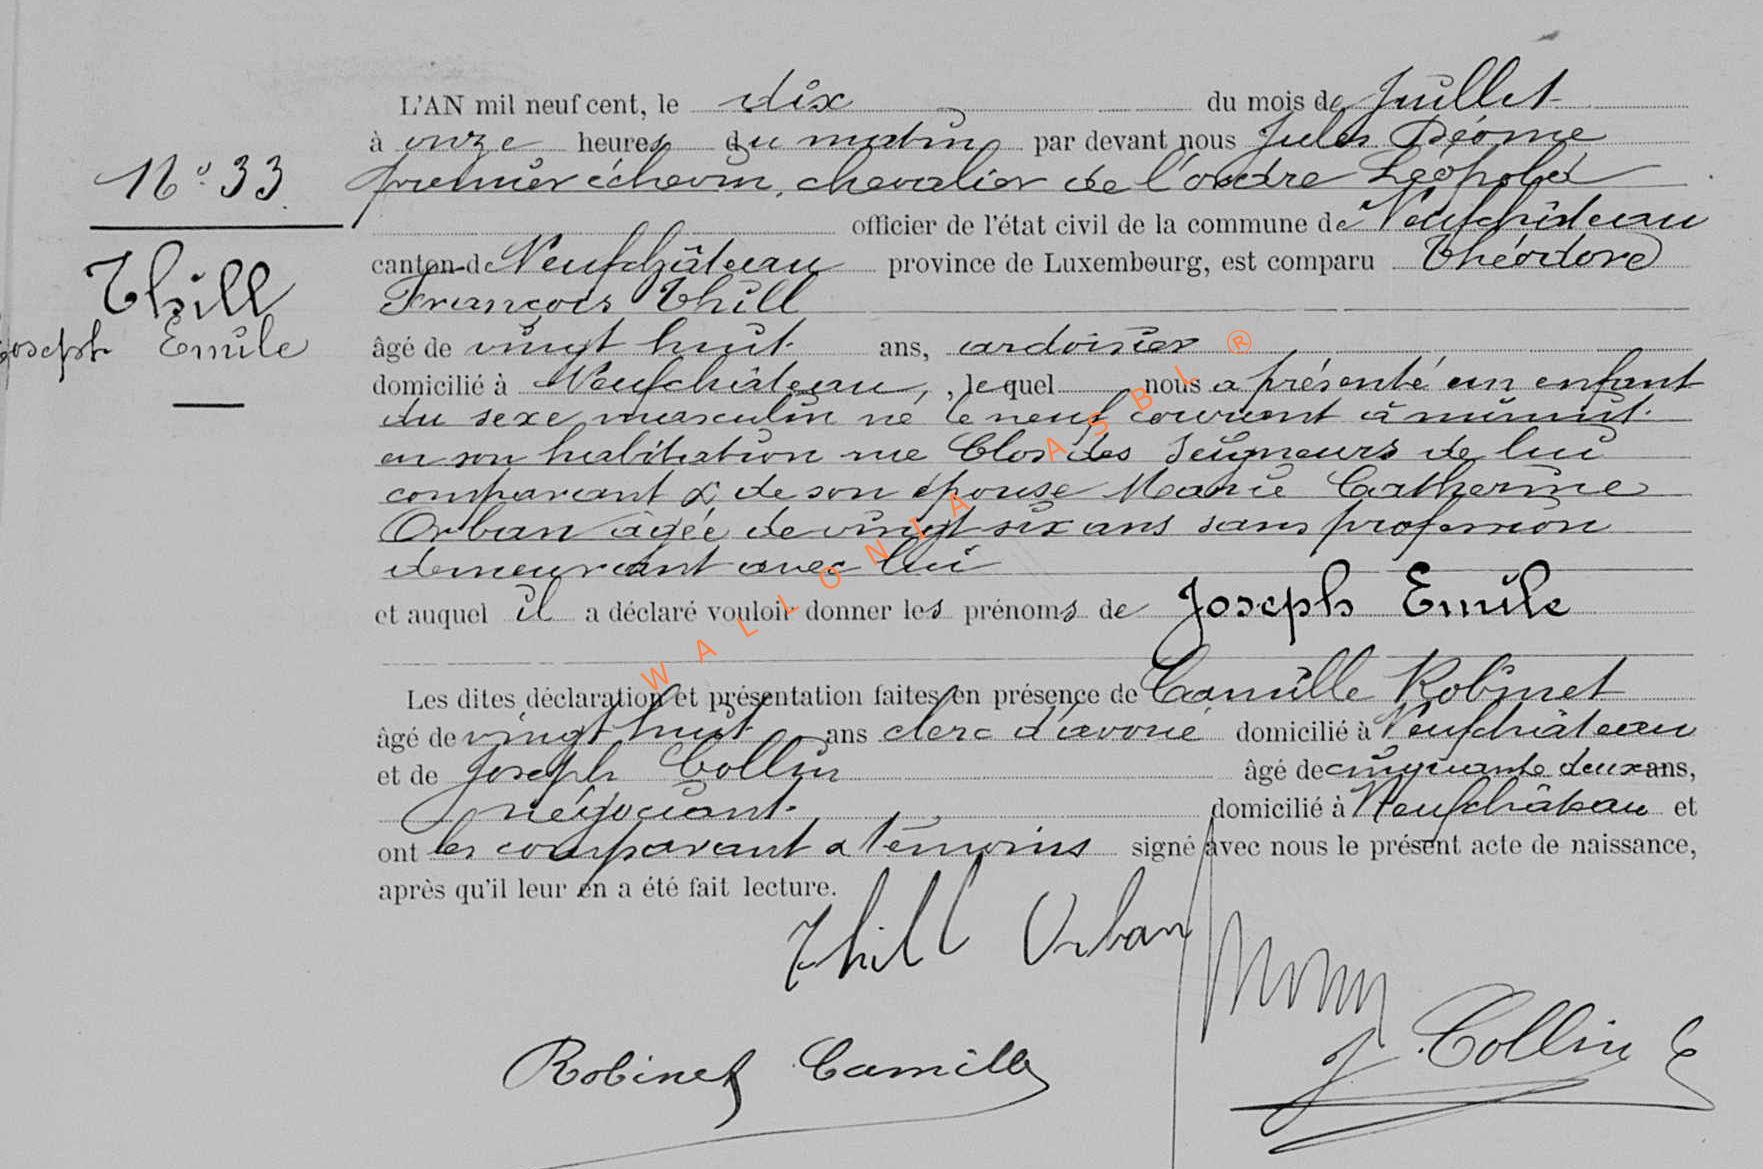 N° 33
Thill
Joseph Emile
L'AN mil neuf cent, le dix du mois de Juillet
à onze heures du matin par devant nous Jules Déome
premier échevin, chevalier de l'ordre Léopold
officier de l'état civil de la commune de Neufchâteau
canton de Neufchâteau province de Luxembourg, est comparu Théodore
François Thill
âgé de vingt huit ans, ardoisier
domicilié à Neufchâteau, lequel nous a présenté un enfant
du sexe masculin né le neuf courant à minuit
en son habitation rue Clos des Seigneurs de lui
comparant & de son épouse Marie Catherine
Orban âgée de vingt six ans sans profession
demeurant avec lui
et auquel il a déclaré vouloir donner les prénoms de Joseph Emile
Les dites déclaration et présentation faites en présence de Camille Robinet
âgé de vingt huit ans clerc d'avoué domicilié à Neufchâteau
et de Joseph Collin âgé de cinquante deux ans,
négociant domicilié à Neufchâteau et
ont les comparant & témoins signé avec nous le présent acte de naissance,
après qu'il leur en a été fait lecture.
Thill Orban
Robinet Camille
J. Collin
WALLONIA ASBL ®